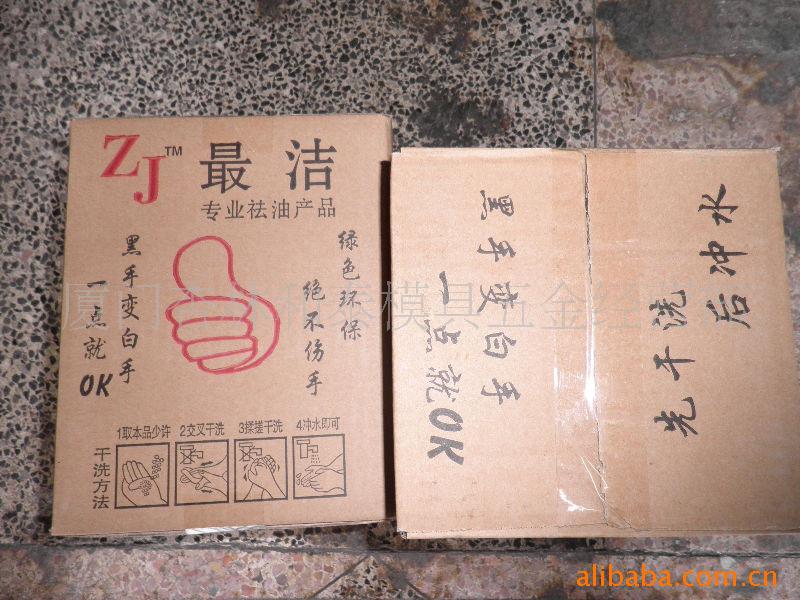 ZJ™ 最洁
专业祛油产品
黑手变白手
一点就OK
绿色环保
绝不伤手
干洗方法
1取本品少许 2交叉干洗 3揉搓干洗 4冲水即可
黑手变白手
一点就OK
先干洗
后冲水
alibaba.com.cn